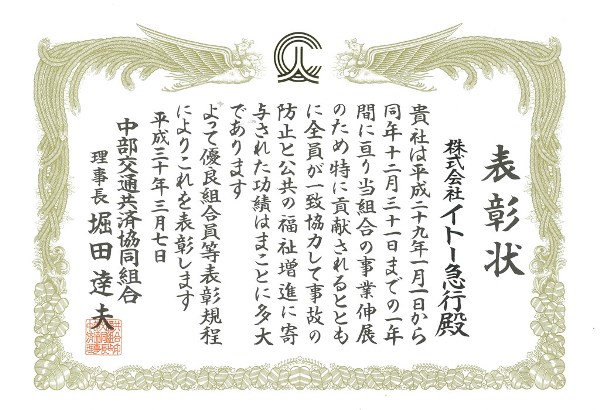 表彰状
株式会社イトー急行殿
貴社は平成二十九年一月一日から
同年十二月三十一日までの一年
間に亘り当組合の事業伸展
のため特に貢献されるととも
に全員が一致協力して事故の
防止と公共の福祉増進に寄
与された功績はまことに多大
であります
よって優良組合員等表彰規程
によりこれを表彰します
平成三十年三月七日
中部交通共済協同組合
理事長 堀田達夫